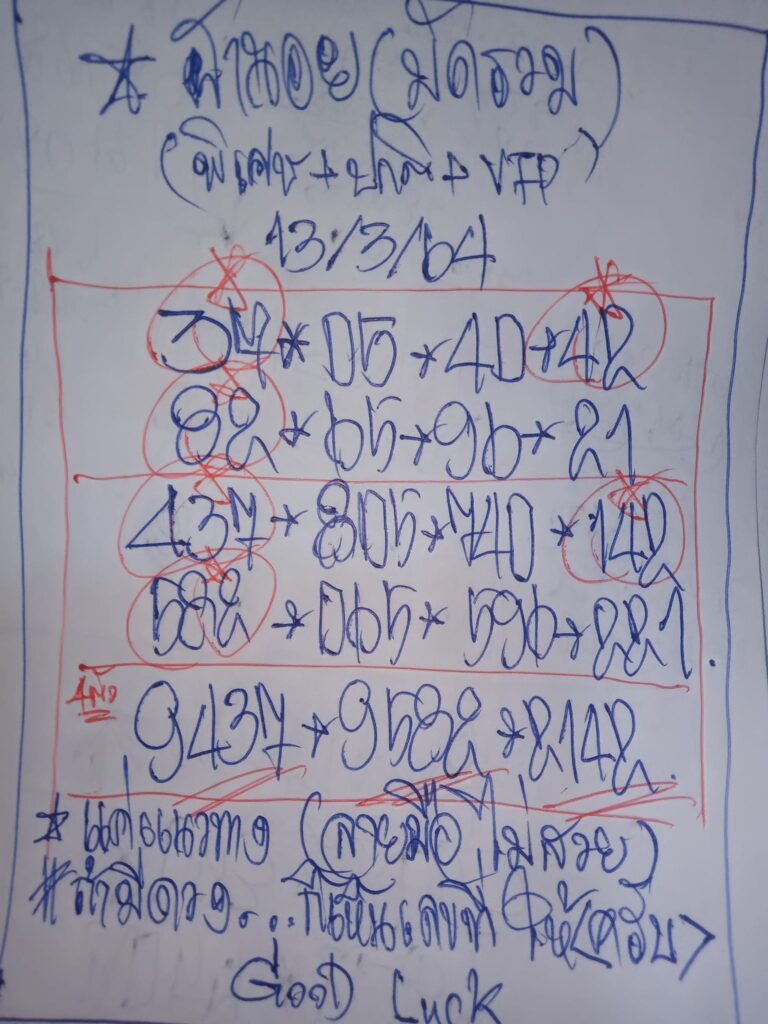 ★ ฮานอย (มัดรวม)
(พิเศษ + ปกติ + VIP)
13/3/64
37 * 05 * 40 * 42
82 * 65 * 96 * 21
437 * 805 * 740 * 142
582 * 065 * 596 * 221
4ตัว
9437 * 9582 * 2142
★ แค่แนวทาง (ลายมือไม่สวย)
# ถ้ามีดวง... ก็เห็นเลขที่ให้(ครับ>
Good Luck